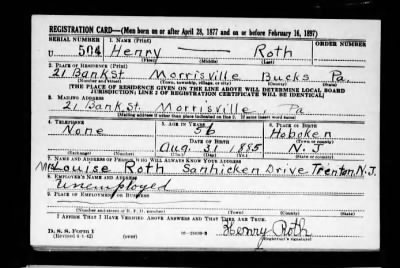 REGISTRATION CARD—(Men born on or after April 28, 1877 and on or before February 16, 1897)
SERIAL NUMBER 1. NAME (Print) ORDER NUMBER
U 504 Henry — Roth
(First) (Middle) (Last)
2. PLACE OF RESIDENCE (Print)
21 Bank St Morrisville Bucks Pa.
(Number and street) (Town, township, village, or city) (County) (State)
[THE PLACE OF RESIDENCE GIVEN ON THE LINE ABOVE WILL DETERMINE LOCAL BOARD
JURISDICTION; LINE 2 OF REGISTRATION CERTIFICATE WILL BE IDENTICAL]
3. MAILING ADDRESS
21 Bank St. Morrisville, Pa
[Mailing address if other than place indicated on line 2. If same insert word same]
4. TELEPHONE 5. AGE IN YEARS 6. PLACE OF BIRTH
None 56 Hoboken
DATE OF BIRTH (Town or county)
Aug. 31 1885 N.J
(Exchange) (Number) (Mo.) (Day) (Yr.) (State or country)
7. NAME AND ADDRESS OF PERSON WHO WILL ALWAYS KNOW YOUR ADDRESS
Mrs Louise Roth Sanhicken Drive Trenton N.J.
8. EMPLOYER'S NAME AND ADDRESS
Unemployed
9. PLACE OF EMPLOYMENT OR BUSINESS
(Number and street or R. F. D. number) (Town) (County) (State)
I AFFIRM THAT I HAVE VERIFIED ABOVE ANSWERS AND THAT THEY ARE TRUE.
D. S. S. Form 1
(Revised 4-1-42) (over) Henry Roth
(Registrant's signature)